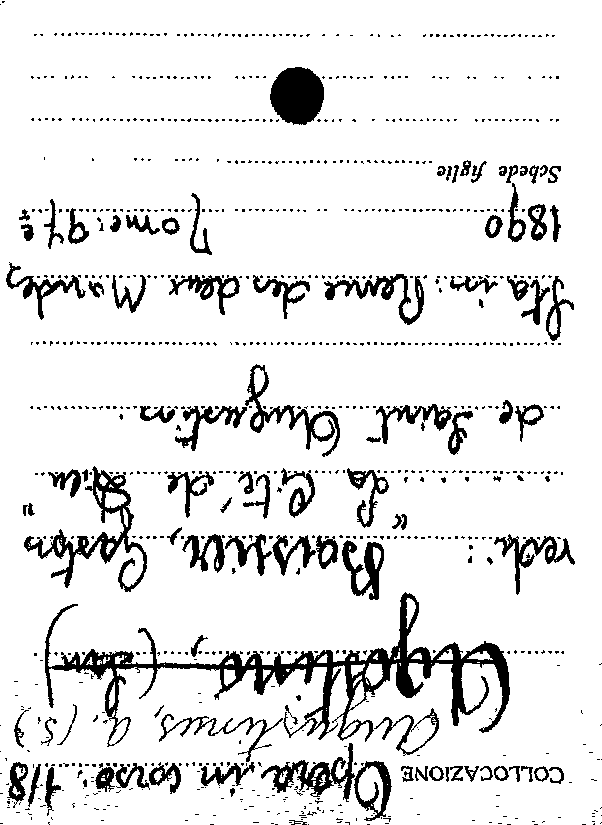 COLLOCAZIONE Opera in corso: 1/8
Augustinus, a. (S.)
Agostino, (San)
vedi: Boissier, Gaston
"La Cité de Dieu"
de Saint Augustin.
Sta in: Revue des deux Mondes
1890 Tome: 97 e
Schede figlie